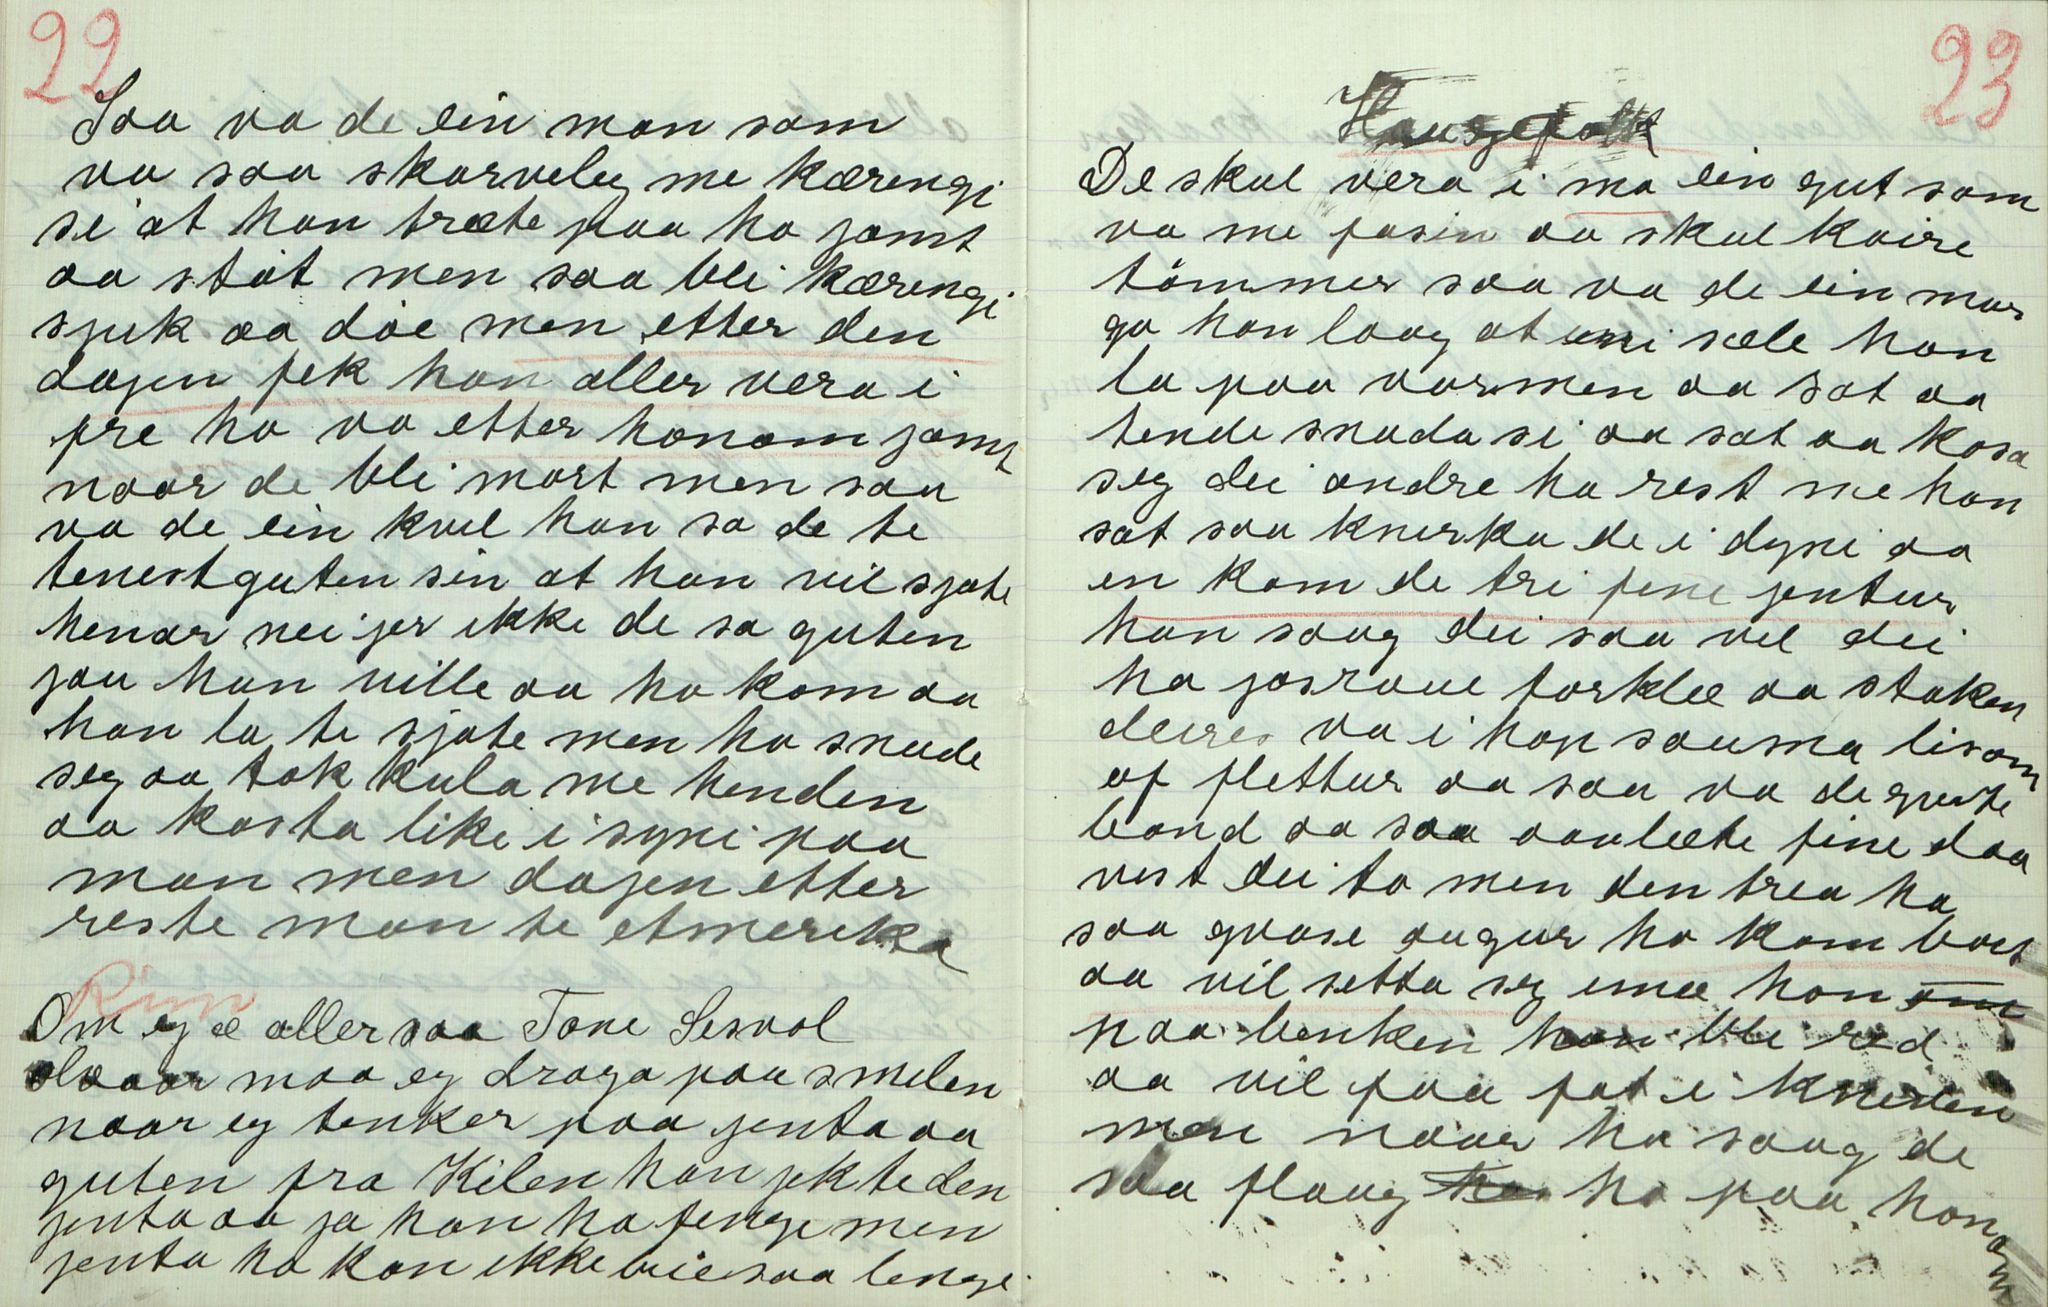 22
Saa va de ein man som
va saa skarveleg me kærengi
si at han træte paa ho jamt
aa støt men saa blei kærengi
sjuk aa døe men etter den
dagen fek han aller vera i
fre ho va etter honom jamt
naar de blei mort men saa
va de ein kvel han sa de te
tenestguten sin at han vil sjote
henar nei jer ikke de sa guten
jau han ville aa ho kom aa
han la te sjote men ho snude
seg aa tok kula me henden
aa kasta like i syni paa
man men dagen etter
reste man te Amerika
Rim
Om eg æ aller saa Tone Sesvol
maa eg draga paa smilen
naar eg tenker paa jenta aa
guten fra Kilen han jekte den
jenta aa ja han ho fenge men
jenta ho kan ikke bie saa lenge
23
Haugefolk
De skul vera i ma ein gut som
va me fasin aa skul køire
tømmer saa va de ein mor
go han laag at uni sele han
la paa varmen aa sat aa
tende snada si aa sat aa kosa
seg dei andre ha rest me han
sat saa knirka de i dyni aa
en kom de tri fine jentur
han saag dei saa vel dei
ha josraue forklæ aa staken
deires va i hop sauma lisom
af flettur aa saa va de guste
bond aa saa aanlete fine daa
vest dei to men den trea ha
saa gvase augur ho kom bort
aa vil setta seg imæ han
paa benken han blei red
aa vil faa fat i kniven
men naar ho saag de
saa flaug ho paa honom